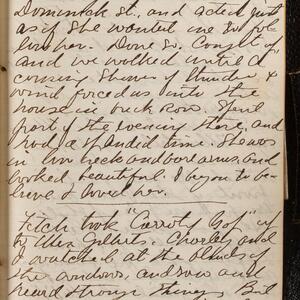 Dominick st., and acted just
as if she wanted me to fol-
low her. Done so. Caught up
and we walked until a
coming shower of thunder &
wind forced us into the
house in back Row. Spent
part of the evening there, and
had a splendid time. She was
in low neck and bare arms, and
looked beautiful. I begin to be-
lieve I loved her.
Fitch took "Carroty Kate" up
to Alex Gilberts. Charley and
I watched at the blinds of
the windows, and saw and
heard strange things. But